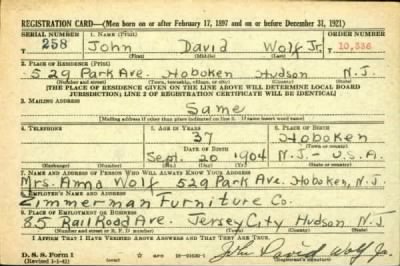 REGISTRATION CARD—(Men born on or after February 17, 1897 and on or before December 31, 1921)
SERIAL NUMBER 1. NAME (Print) ORDER NUMBER
258 John David Wolf Jr. 10,336
(First) (Middle) (Last)
2. PLACE OF RESIDENCE (Print)
529 Park Ave. Hoboken Hudson N.J.
(Number and street) (Town, township, village, or city) (County) (State)
[THE PLACE OF RESIDENCE GIVEN ON THE LINE ABOVE WILL DETERMINE LOCAL BOARD
JURISDICTION; LINE 2 OF REGISTRATION CERTIFICATE WILL BE IDENTICAL]
3. MAILING ADDRESS
Same
[Mailing address if other than place indicated on line 2. If same insert word same]
4. TELEPHONE 5. AGE IN YEARS 6. PLACE OF BIRTH
37 Hoboken
DATE OF BIRTH (Town or county)
Sept. 20 1904 N.J.- U.S.A.
(Exchange) (Number) (Mo.) (Day) (Yr.) (State or country)
7. NAME AND ADDRESS OF PERSON WHO WILL ALWAYS KNOW YOUR ADDRESS
Mrs. Anna Wolf 529 Park Ave. Hoboken, N.J.
8. EMPLOYER'S NAME AND ADDRESS
Zimmerman Furniture Co.
9. PLACE OF EMPLOYMENT OR BUSINESS
85 Rail Road Ave. Jersey City Hudson N.J.
(Number and street or R. F. D. number) (Town) (County) (State)
I AFFIRM THAT I HAVE VERIFIED ABOVE ANSWERS AND THAT THEY ARE TRUE.
D. S. S. Form 1
(Revised 1-1-42) (over) John David Wolf Jr.
(Registrant's signature)